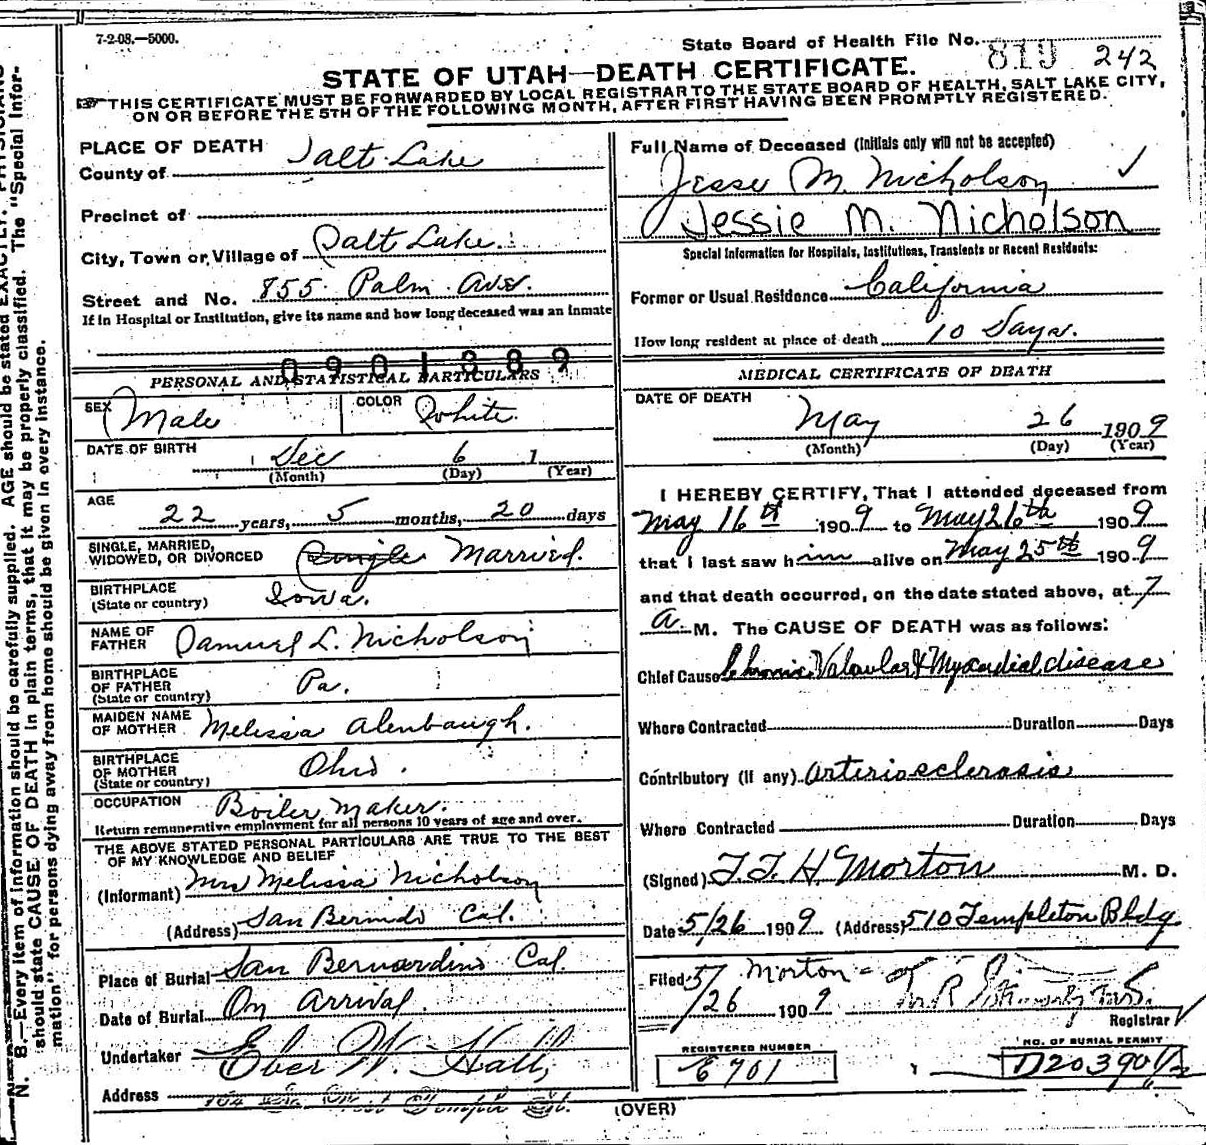 7-2-08.—5000.
State Board of Health File No. 819 242
STATE OF UTAH—DEATH CERTIFICATE.
THIS CERTIFICATE MUST BE FORWARDED BY LOCAL REGISTRAR TO THE STATE BOARD OF HEALTH, SALT LAKE CITY,
ON OR BEFORE THE 5TH OF THE FOLLOWING MONTH, AFTER FIRST HAVING BEEN PROMPTLY REGISTERED.
N. B.—Every item of information should be carefully supplied. AGE should be stated EXACTLY. PHYSICIANS
should state CAUSE OF DEATH in plain terms, that it may be properly classified. The "Special Infor-
mation" for persons dying away from home should be given in every instance.
PLACE OF DEATH
County of Salt Lake
Precinct of
City, Town or Village of Salt Lake.
Street and No. 855 Palm Ave.
If in Hospital or Institution, give its name and how long deceased was an inmate
0901389
PERSONAL AND STATISTICAL PARTICULARS
SEX Male COLOR White
DATE OF BIRTH Dec 6 1
(Month) (Day) (Year)
AGE
22 years, 5 months, 20 days
SINGLE, MARRIED,
WIDOWED, OR DIVORCED Single Married.
BIRTHPLACE
(State or country) Iowa.
NAME OF
FATHER Samuel L. Nicholson
BIRTHPLACE
OF FATHER
(State or country) Pa.
MAIDEN NAME
OF MOTHER Melissa Alenbaugh.
BIRTHPLACE
OF MOTHER
(State or country) Ohio.
OCCUPATION Boiler Maker.
Return remunerative employment for all persons 10 years of age and over.
THE ABOVE STATED PERSONAL PARTICULARS ARE TRUE TO THE BEST
OF MY KNOWLEDGE AND BELIEF
(Informant) Mrs Melissa Nicholson
(Address) San Bernido Cal.
Place of Burial San Bernardino Cal.
Date of Burial On Arrival.
Undertaker Eber W. Hall,
Address 164 So. West Temple St.
Full Name of Deceased (Initials only will not be accepted)
Jesse M. Nicholson
Jessie M. Nicholson
Special Information for Hospitals, Institutions, Transients or Recent Residents:
Former or Usual Residence California
How long resident at place of death 10 Days.
MEDICAL CERTIFICATE OF DEATH
DATE OF DEATH
May 26 1909
(Month) (Day) (Year)
I HEREBY CERTIFY, That I attended deceased from
May 16th 1909 to May 26th 1909
that I last saw him alive on May 25th 1909
and that death occurred, on the date stated above, at 7
a. M. The CAUSE OF DEATH was as follows:
Chief Cause Chronic Valvular & Myocardial disease
Where Contracted Duration Days
Contributory (if any) Arteriosclerosis
Where Contracted Duration Days
(Signed) T. F. H. Morton M. D.
Date 5/26 1909 (Address) 510 Templeton Bldg
Filed 5/26 1909 Morton
Registrar
REGISTERED NUMBER
E 701
NO. OF BURIAL PERMIT
D20390½
(OVER)